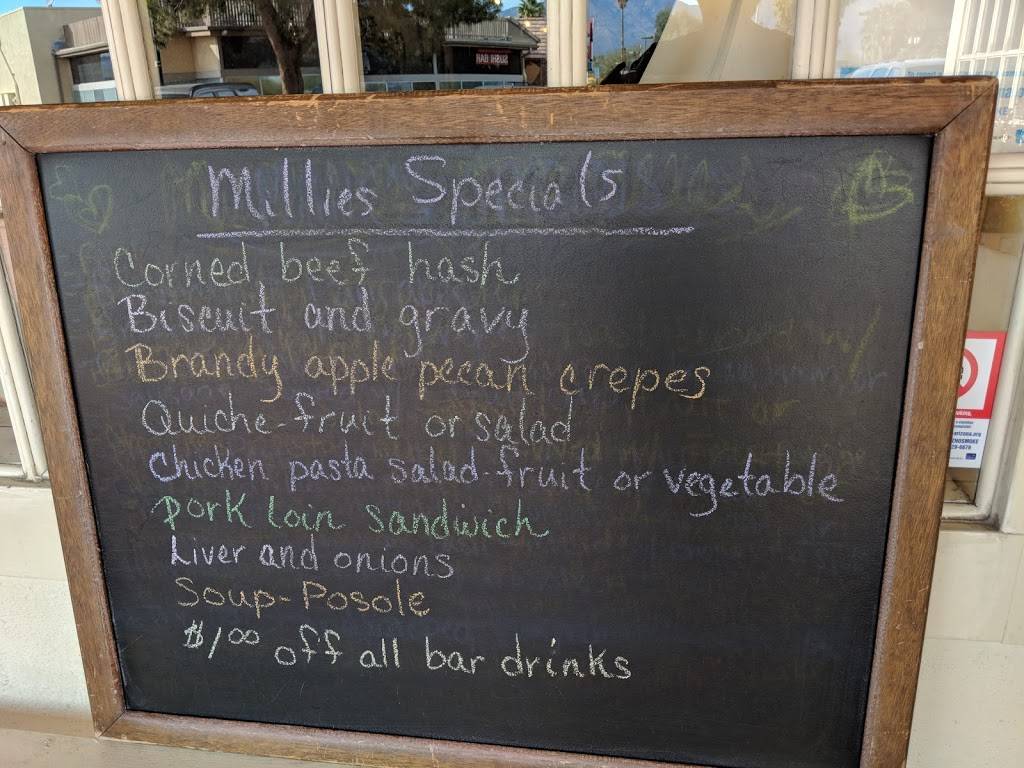 SUSHI BAR
Millies Specials
Corned beef hash
Biscuit and gravy
Brandy apple pecan crepes
Quiche-fruit or salad
Chicken pasta salad-fruit or vegetable
Pork loin sandwich
Liver and onions
Soup-Posole
$1.00 off all bar drinks